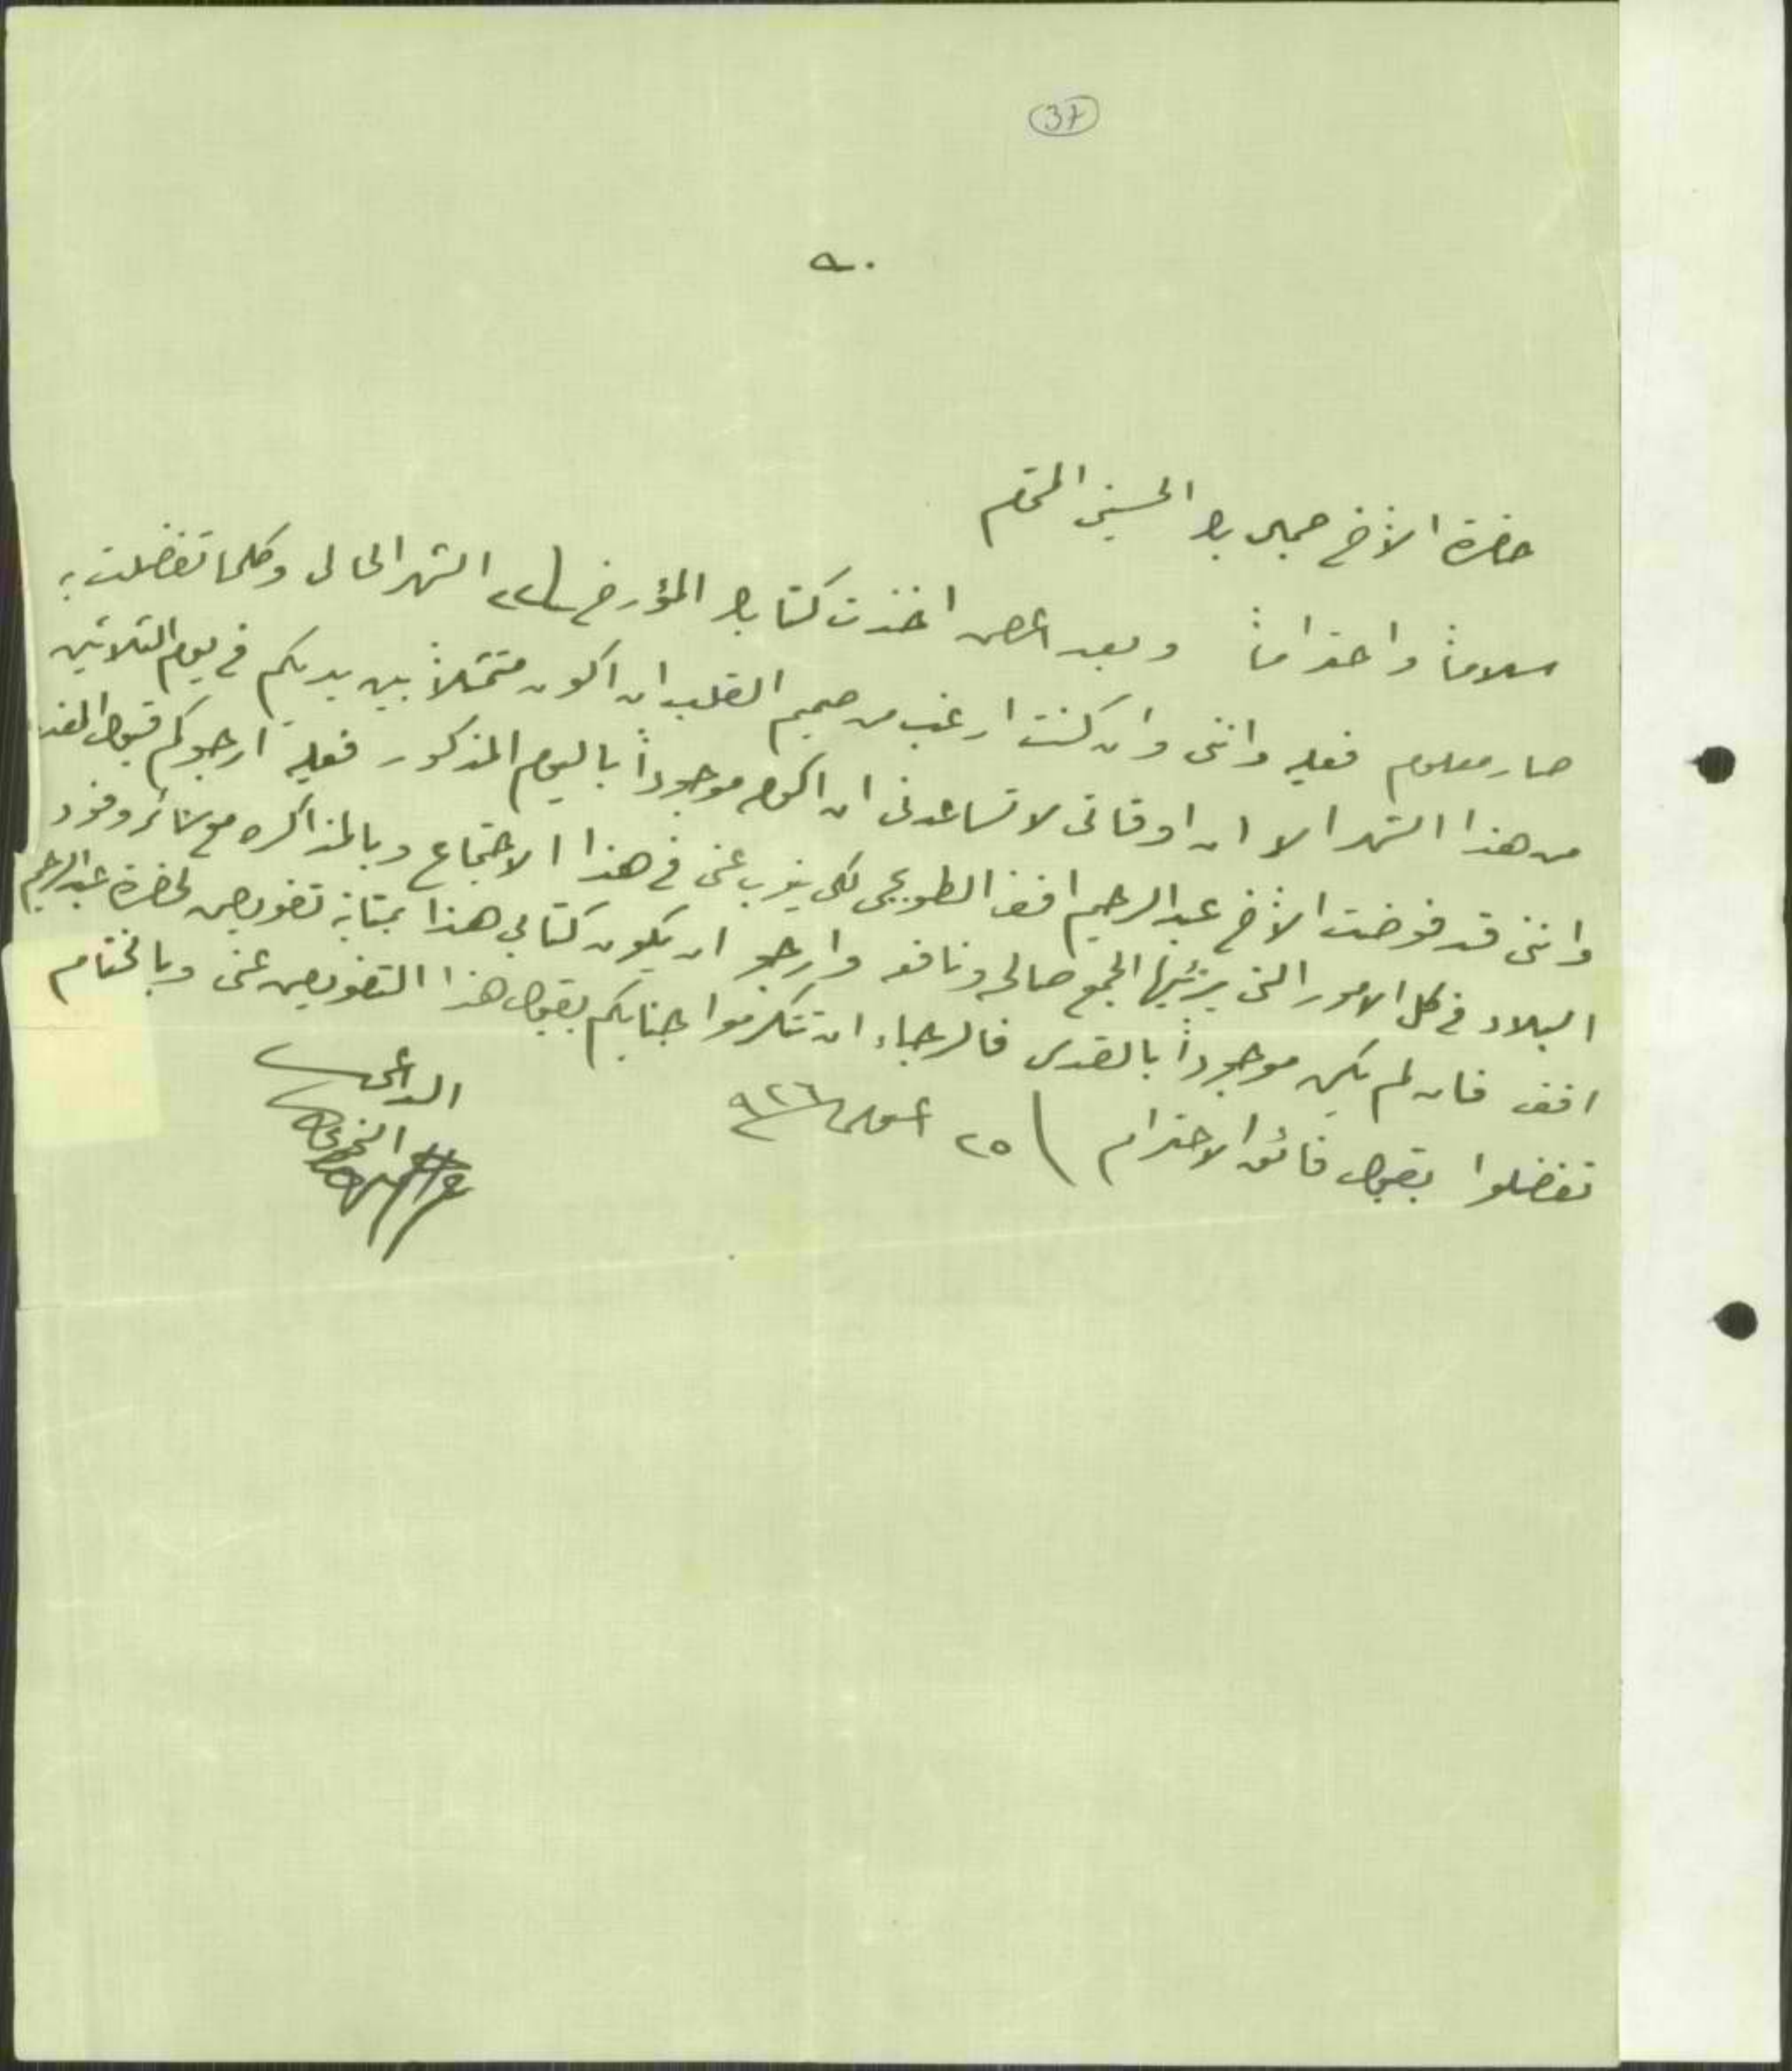 37
حضرة الأخ جمال بك الحسيني المحترم
سلاماً واحتراماً وبعد اخذت كتابك المؤرخ ٢٢ الشهر الحالى وكلما تفضلت به
صار معلوم فعليه واننى وان كنت ارغب من صميم القلب ان اكون متمثلاً بين يديكم في يوم الثلاثين
من هذا الشهر الا ان اوقاتى لا تساعدنى ان اكون موجوداً باليوم المذكور فعليه ارجوكم قبول العذر
واننى قد فوضت الأخ عبد الرحيم افندى الطوبجى لكى ينوب عنى في هذا الاجتماع وبالمذاكره مع سائر وفود
البلاد في كل الامور التى يرتئيها الجمع صالحه ونافعه وارجو ان يكون كتابي هذا بمثابة تفويض لحضرة عبد الرحيم
افندى فان لم يكن موجوداً بالقدس فالرجاء ان تتكرموا جنابكم بقبول هذا التفويض عنى وبالختام
تفضلوا بقبول فائق الاحترام ٢٥ ٩٢٦
الداعى